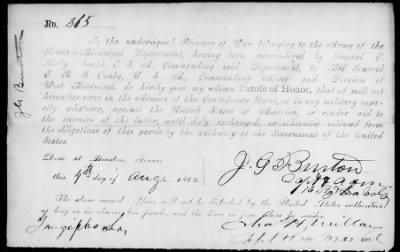 No. 865
I, the undersigned, Prisoner of War, belonging to the Army of the
Trans-Mississippi Department, having been surrendered by General E.
Kirby Smith, C. S. A., Commanding said Department, to Maj. General
E. R. S. Canby, U. S. A., Commanding Army and Division of
West Mississippi, do hereby give my solemn Parole of Honor, that I will not
hereafter serve in the Armies of the Confederate States, or in any military capa-
city whatever, against the United States of America, or render aid to
the enemies of the latter, until duly exchanged, or otherwise released from
the obligations of this parole by the authority of the Government of the United
States.
J. G. Burton
Done at Houston, Texas
this 4th day of Aug. 1865
The above named officer will not be disturbed by the United States authorities
as long as he observes this parole, and the laws in force where he resides.
J G Burton